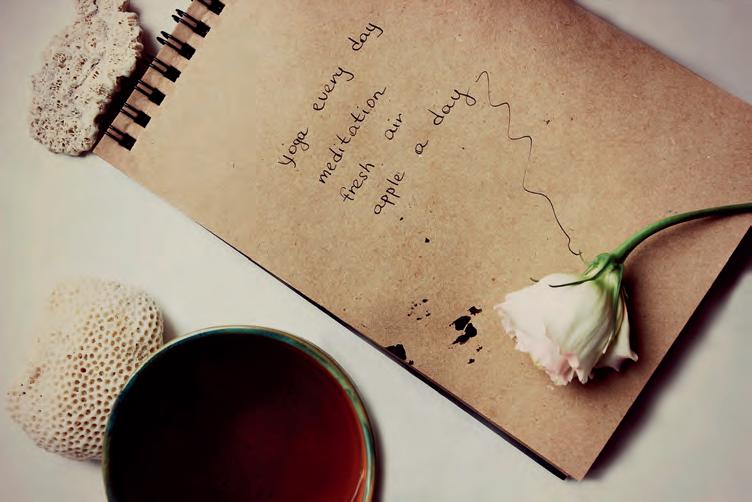 yoga every day
meditation
fresh air
apple a day